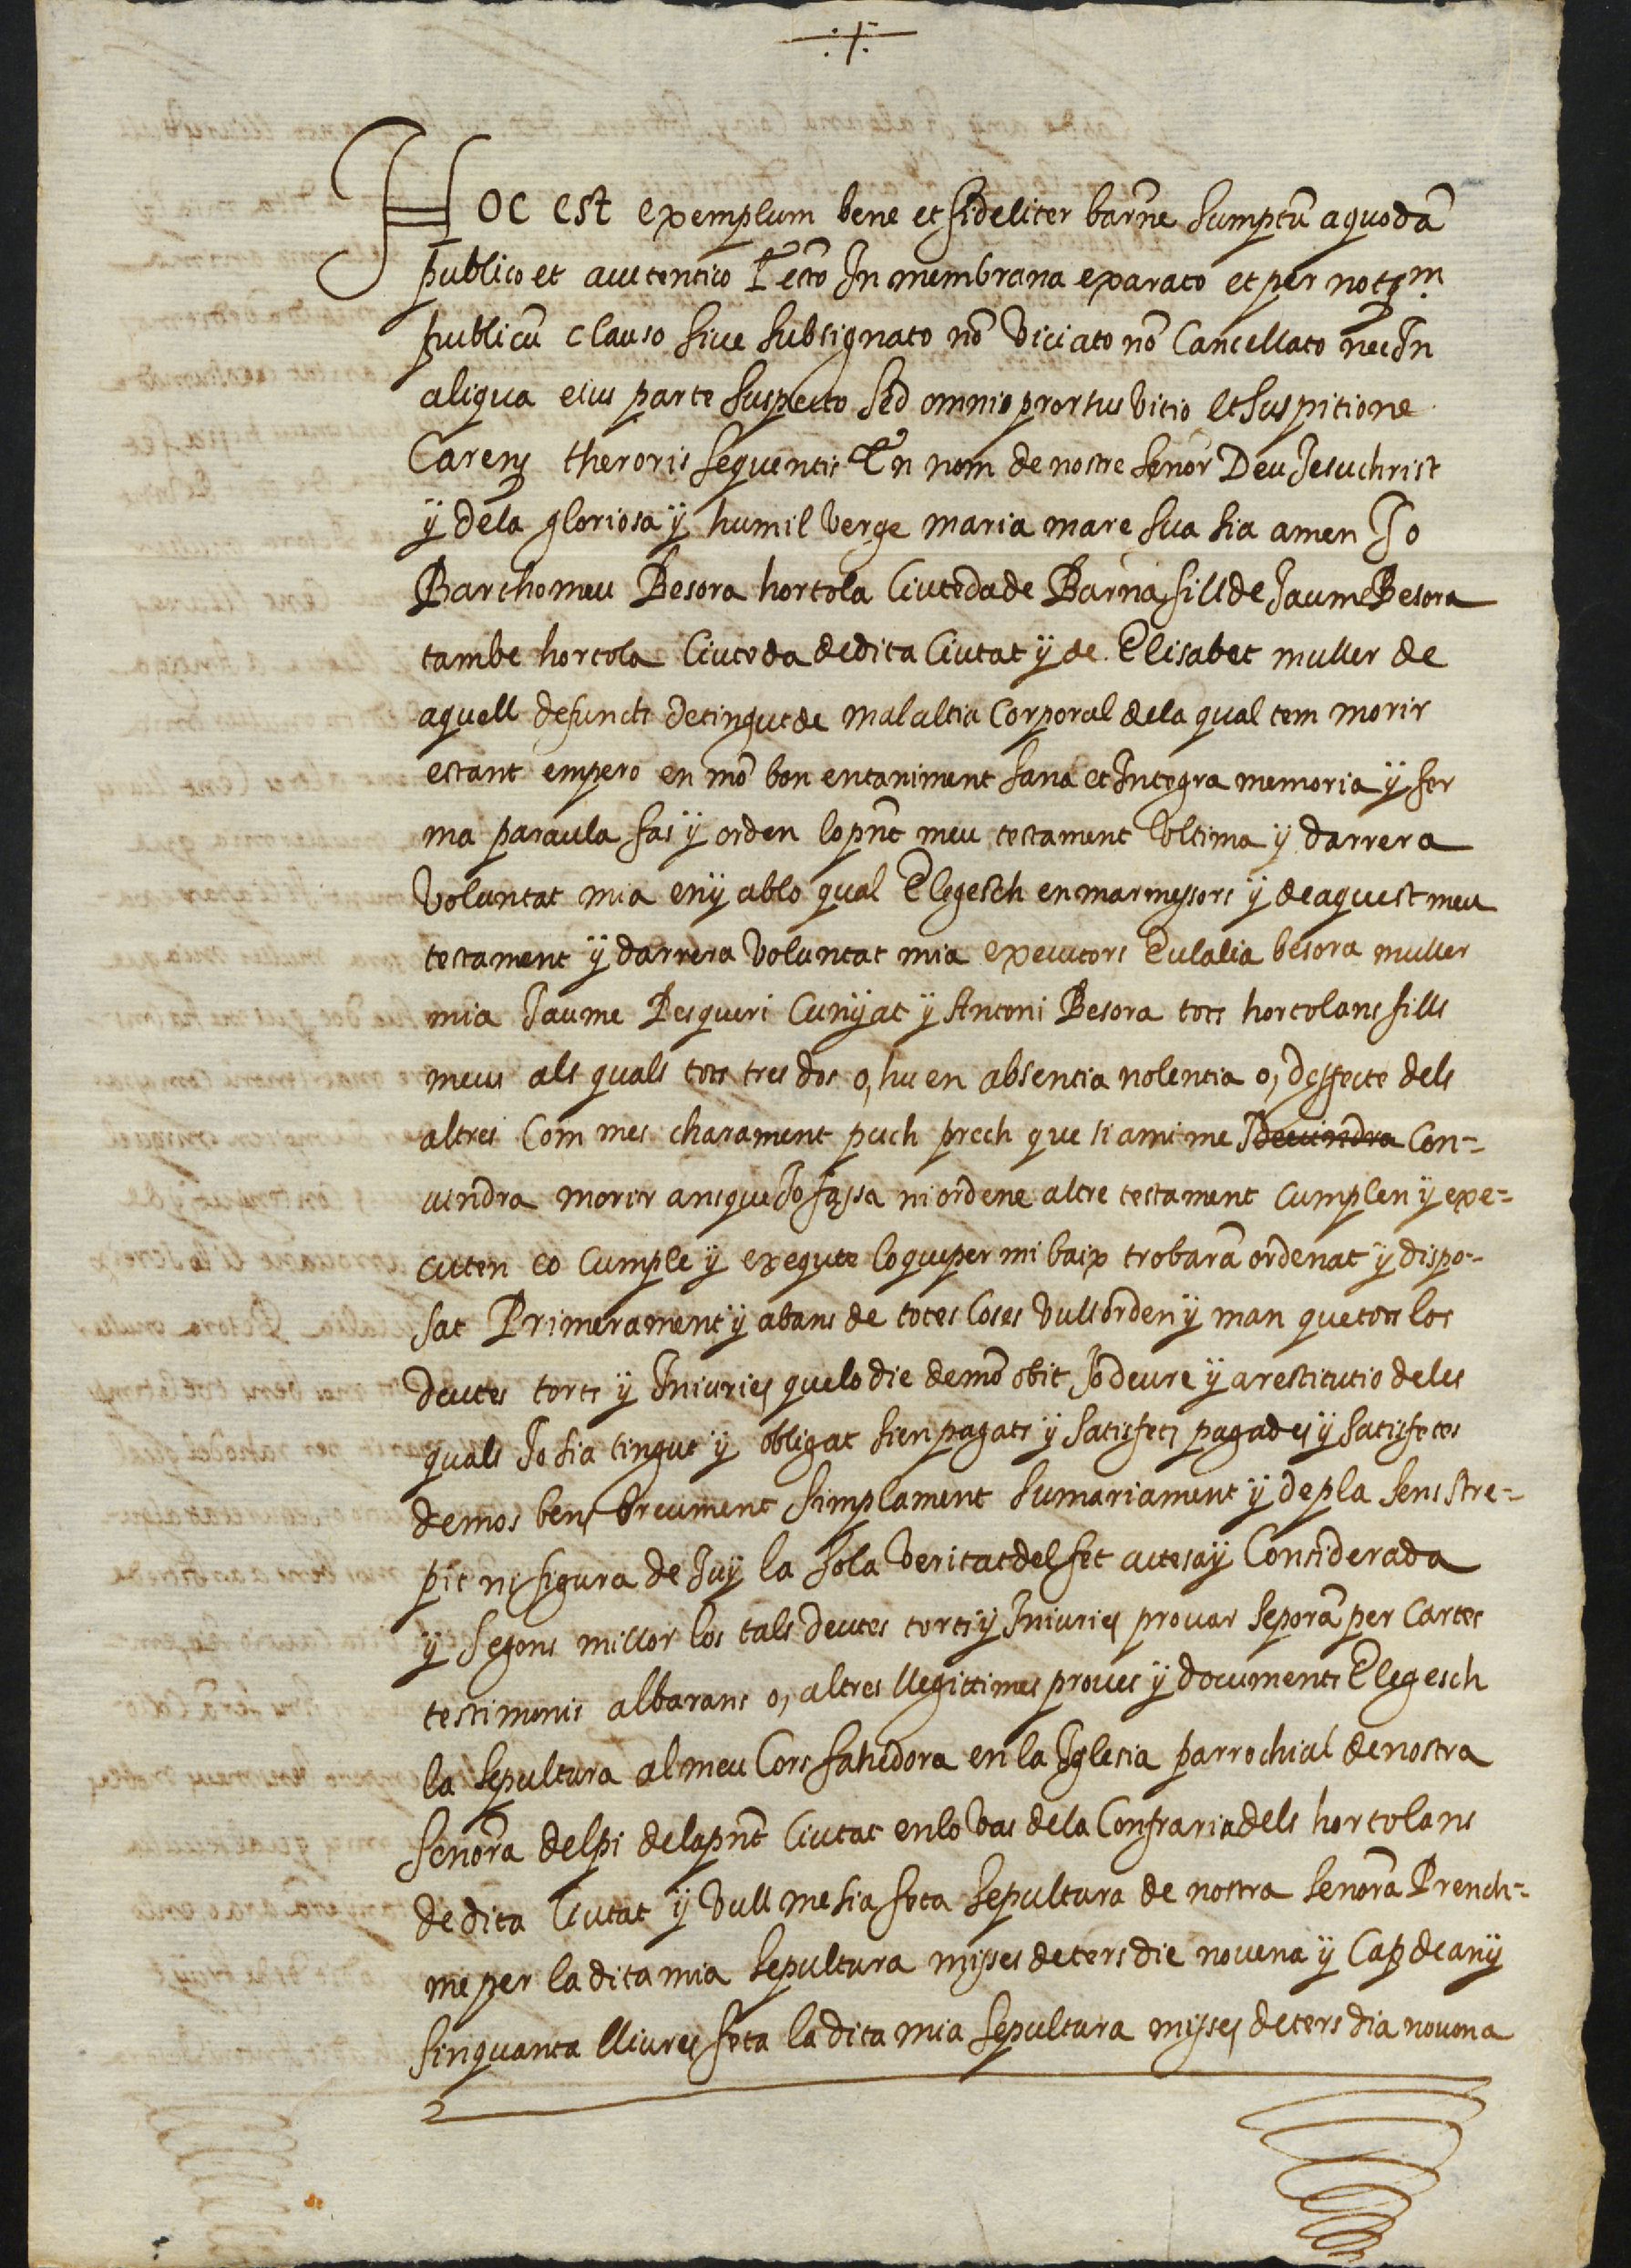 Hoc est exemplum bene et fideliter barñe sumptũ a quodã
publico et auctentico testo In membrana exarato et per notm
publicũ clauso siue subsignato nõ viciato nõ Cancellato nec In
aliqua eius parte suspecto sed omnio prorsus vitio et suspitione
Carens theroris sequentis En nom de nostre senõr Deu Jesuchrist
ÿ dela gloriosa ÿ humil verge maria mare sua sia amen Jo
Barthomeu Besora hortola Ciutedade Barna fill de Jaume Besora
tambe hortola Ciuteda dedita Ciutat ÿ de Elisabet muller de
aquell defuncts detingut de malaltia Corporal dela qual tem morir
estant empero en mõ bon enteniment sana et Integra memoria ÿ fer
ma paraula fas ÿ orden lo pñt meu testament vltima ÿ darrera
voluntat mia en ÿ ablo qual Elegesch en marmessors ÿ de aquest meu
testament ÿ darrera voluntat mia executors Eulalia besora muller
mia Jaume Pesqueri Cunÿat ÿ Antoni Besora tots hortolans fills
meus als quals tots tres dos o, hu en absentia nolentia o, deffecte dels
altres Com mes charament puch prech que si ami me Deuindra Con=
uindra morir ans que Jo fassa ni ordene altre testament cumplen ÿ exe=
cuten co cumple ÿ exequte lo que per mi baix trobarã ordenat ÿ dispo=
sat Primerament ÿ abans de totes Coses vull orden ÿ man que tots los
deutes torts ÿ Iniuries que lo die de mõ obit Jo deure ÿ a restitutio de les
quals Jo sia tingut ÿ obligat sien pagats ÿ satisfets pagades ÿ satisfetes
de mos bens breument simplament sumariament ÿ de pla sens stre=
pit ni figura de Juÿ la sola veritat del fet atesaÿ Considerada
ÿ segons millor los tals deutes torts ÿ Iniuries prouar se porã per Cartes
testimonis albarans o, altres llegittimes proues ÿ documents Elegesch
la sepultura al meu Cors fahedora en la Iglesia parrochial de nostra
Senõra del pi dela pñt Ciutat en lo vas dela Confraria dels hortolans
de dita Ciutat ÿ vull me sia feta sepultura de nostra senõra Prench=
me per la dita mia sepultura misses de ters die nouena ÿ Cap de anÿ
sinquanta lliures feta la dita mia sepultura misses de ters dia nouena